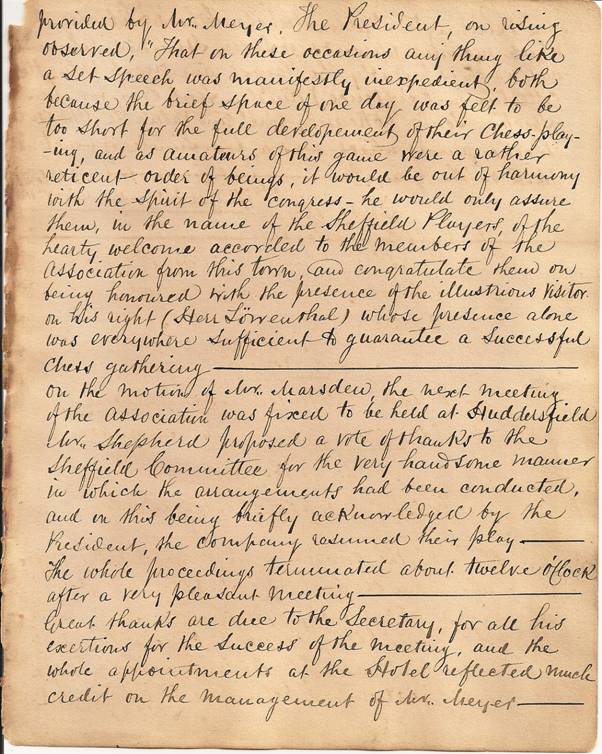 provided by Mr. Meyer. The President, on rising
observed, "That on these occasions any thing like
a set speech was manifestly inexpedient, both
because the brief space of one day was felt to be
too short for the full developement of their Chess-play-
-ing, and as amateurs of this game were a rather
reticent order of beings, it would be out of harmony
with the spirit of the congress - he would only assure
them, in the name of the Sheffield Players, of the
hearty welcome accorded to the members of the
Association from this town, and congratulate them on
being honoured with the presence of the illustrious Visitor
on his right (Herr Löwenthal) whose presence alone
was everywhere sufficient to guarantee a successful
Chess gathering —
On the motion of Mr. Marsden, the next meeting
of the Association was fixed to be held at Huddersfield
Mr. Shepherd proposed a vote of thanks to the
Sheffield Committee for the very handsome manner
in which the arrangements had been conducted,
and on this being briefly acknowledged by the
President, the company resumed their play —
The whole proceedings terminated about twelve o'Clock
after a very pleasant meeting —
Great thanks are due to the Secretary, for all his
exertions for the success of the meeting, and the
whole appointments at the Hotel reflected much
credit on the management of Mr. Meyer —